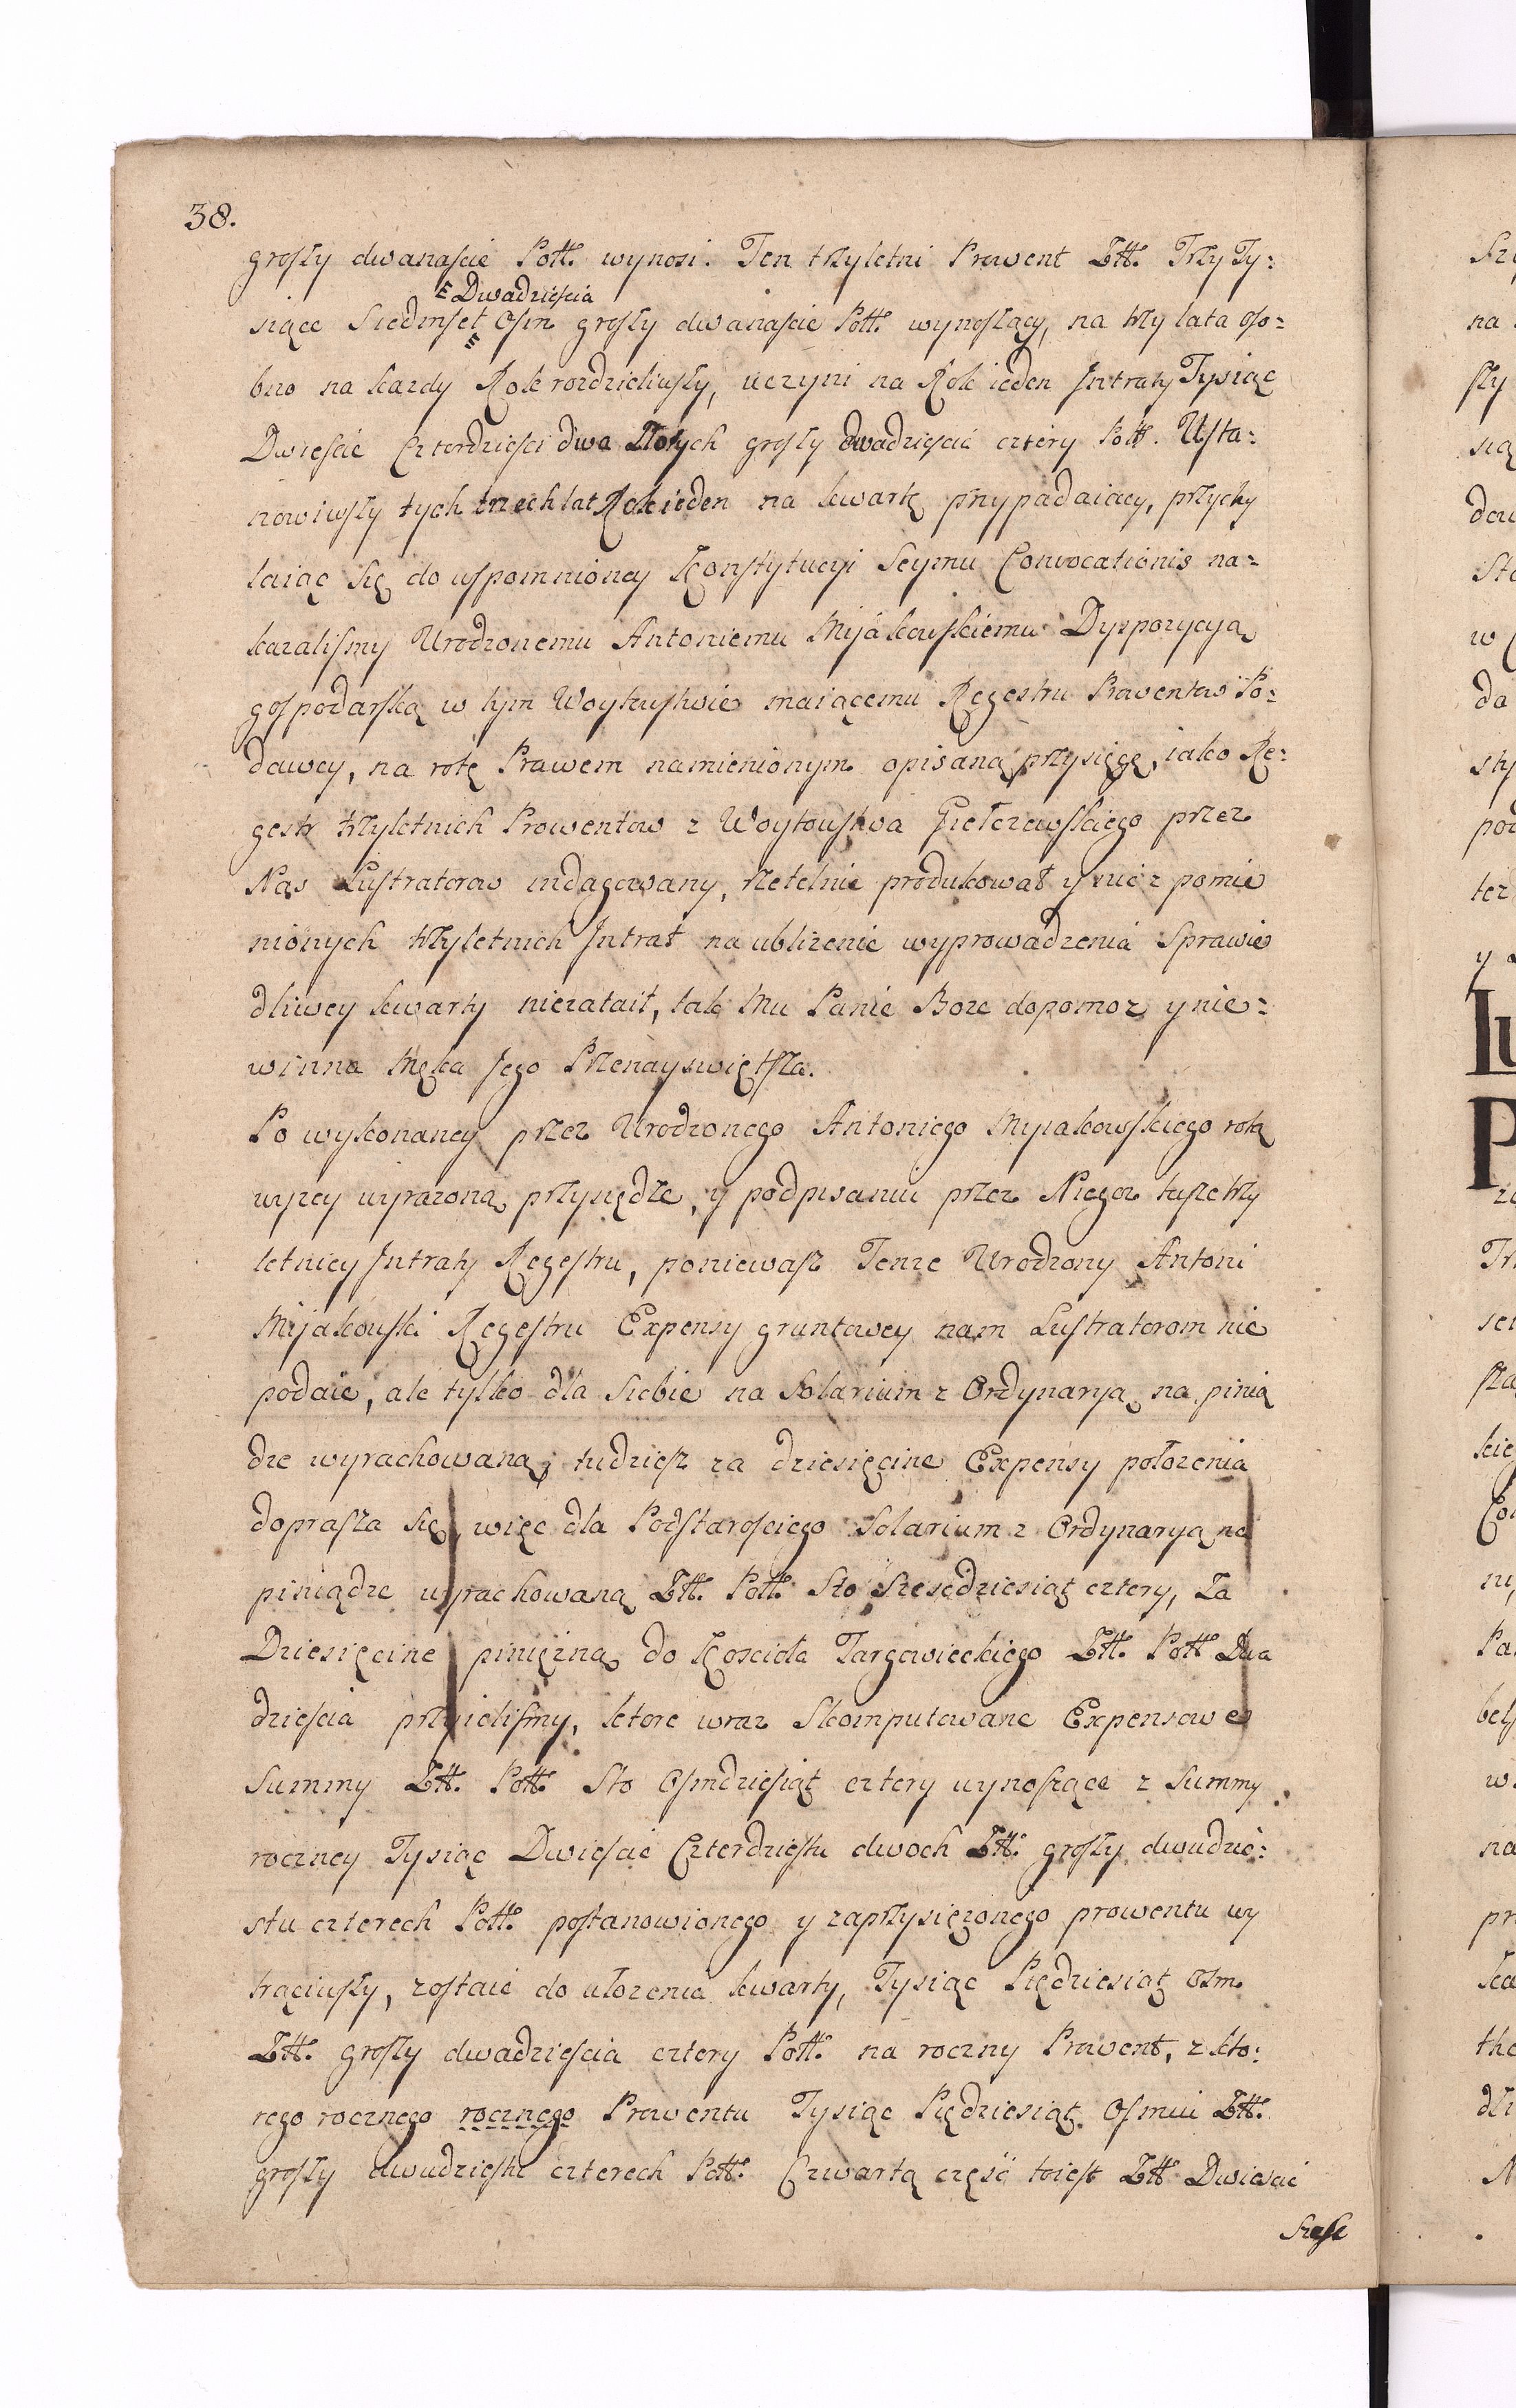 38.
groszy dwanascie Poll. wynosi. Ten trzyletni Prowent Zll. Trzy Ty=
Dwadziescia
siące Siedmset Osm groszy dwanascie Poll. wynoszący, na trzy lata oso=
bno na kazdy Rok rozdzieliwszy, uczyni na Rok ieden Intraty Tysiąc
Dwiescie Czterdziesci dwa Złotych groszy dwadziescia cztery Poll. Usta=
nowiwszy tych trzech lat Rok ieden na kwartę przypadaiący, przychy
laiąc się do wspomnioney Konstytucyi Seymu Convocationis na=
kazalismy Urodzonemu Antoniemu Mijakowskiemu Dyspozycyą
gospodarską w tym Woytowstwie maiącemu Regestru Prowentow Po=
dawcy, na rotę Prawem namienionym opisaną przysięgę, iako Re=
gestr trzyletnich Prowentow z Woytowstwa Giełczewskiego przez
Nas Lustratorow indagowany, rzetelnie produkował y nic z pomie
nionych trzyletnich Intrat na ublizenie wyprowadzenia Sprawie
dliwey kwarty niezataił, tak Mu Panie Boze dopomoz y nie=
winna Męka Jego Przenayswiętsza.
Po wykonaney przez Urodzonego Antoniego Myiakowskiego rotą
wyzey wyrazoną przysiędze, y podpisaniu przez Niegoz tuszetrzy
letniey Intraty Regestru, poniewasz Tenze Urodzony Antoni
Mijakowski Regestru Expensy gruntowey nam Lustratorom nie
podaie, ale tylko dla siebie na Solarium z Ordynaryą na pinią
dze wyrachowaną, tudziesz za dziesięcine Expensy połozenia
doprasza się, więc dla Podstarosciego Solarium z Ordynaryą na
piniądze wyrachowaną Zll. Poll. Sto Szescdziesiąt cztery, Za
Dziesięcine pinięzną do Koscioła Targowieckiego Zll. Poll Dwa
dziescia przyielismy, ktore wraz Skomputowane Expensowe
Summy Zll. Poll. Sto Osmdziesiąt cztery wynoszące z Summy
roczney Tysiąc Dwiescie Czterdziestu dwoch Zll. groszy dwudzie=
stu czterech Poll. postanowionego y zaprzysięzonego prowentu wy
trąciwszy, zostaie do ułozenia kwarty, Tysiąc Pięcdziesiąt Osm
Zll. groszy dwadziescia cztery Poll. na roczny Prowent, z kto=
rego rocznego rocznego Prowentu Tysiąc Pięcdziesiąt Osmiu Zll.
groszy dwudziestu czterech Poll. Czwarta częsc toiest Zll Dwiescie
Szesc